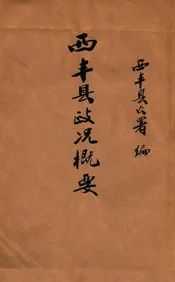 西丰县公署 编
西丰县政况概要